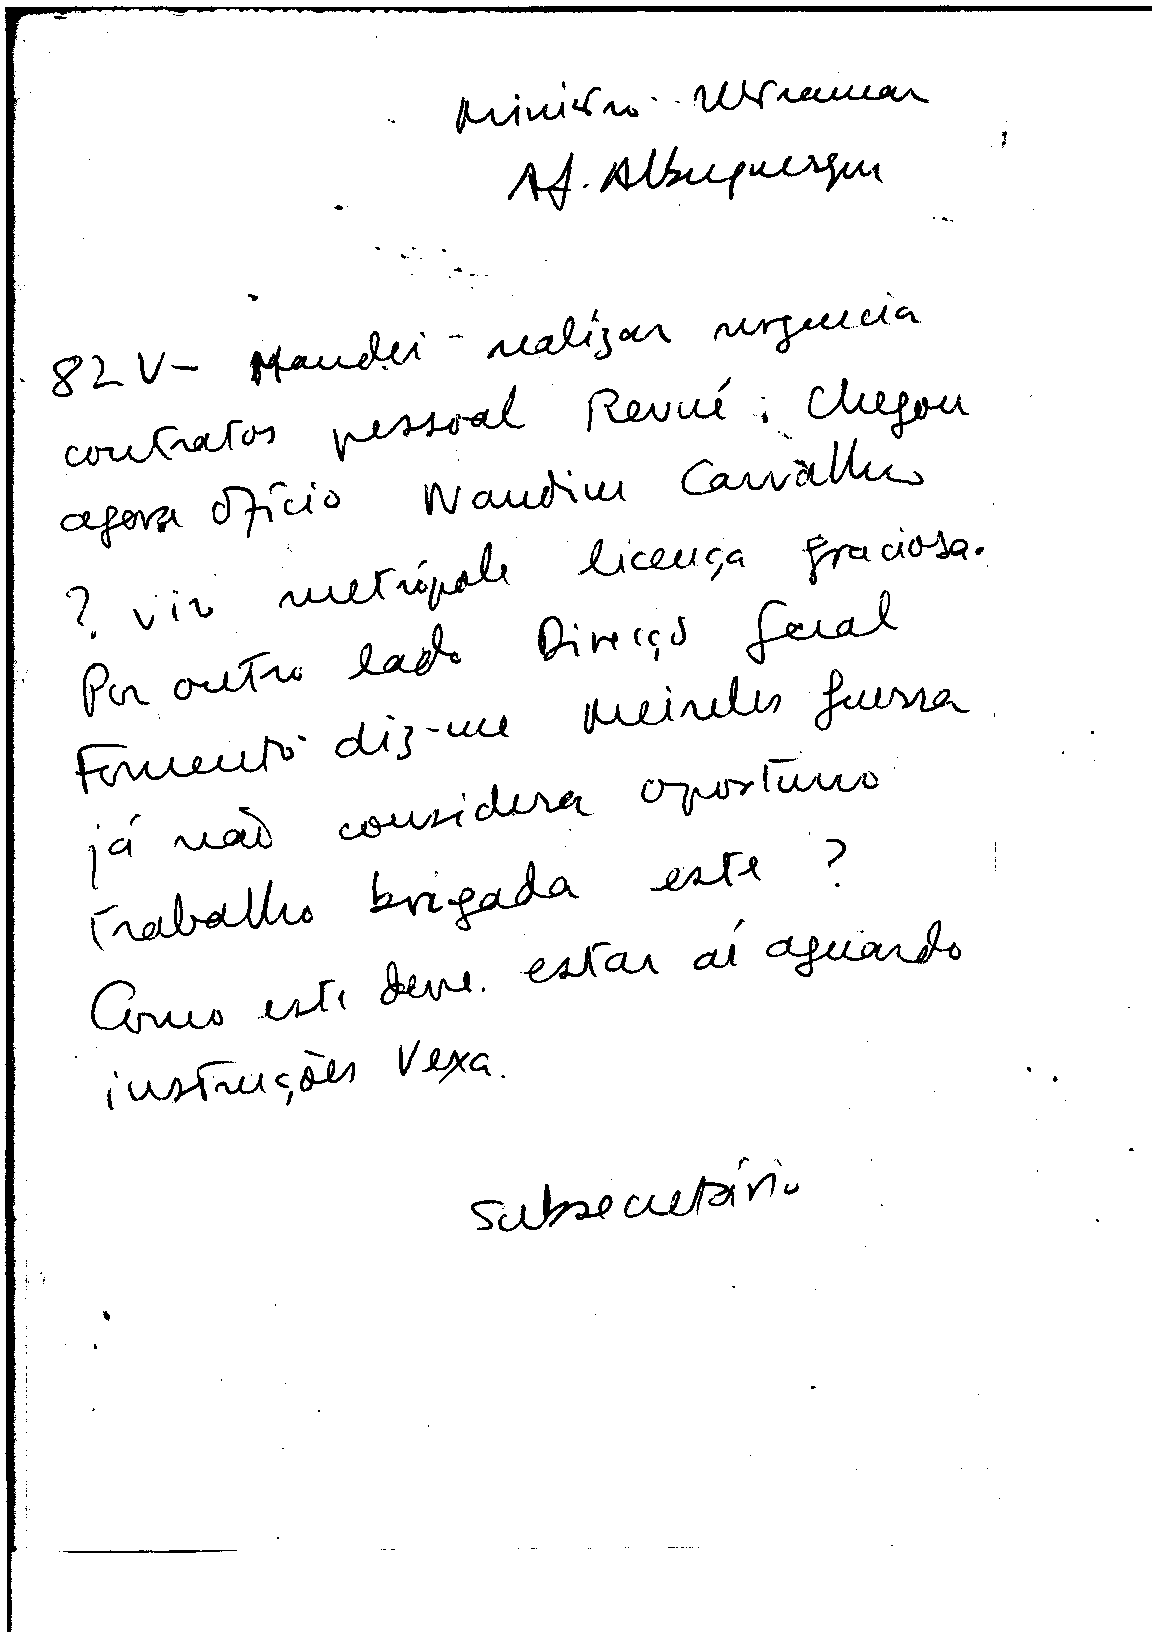 Ministro Ultramar
Af. Albuquerque
82 V- Mandei realizar urgencia
contratos pessoal Revué. Chegou
agora ofício Carvalho
? vir metrópole licença graciosa.
Por outro lado Direcçõ Geral
Fomento diz-me Meireles Guerra
já não considera oportuno
trabalho brigada este ?
Como este deve estar aí aguardo
instruções Vexa.
Subsecretário